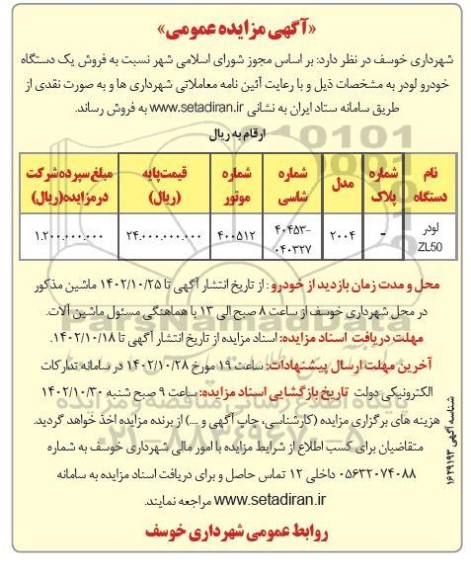 «آگهی مزایده عمومی»
شهرداری خوسف در نظر دارد: بر اساس مجوز شورای اسلامی شهر نسبت به فروش یک دستگاه
خودرو لودر به مشخصات ذیل و با رعایت آئین نامه معاملاتی شهرداری ها و به صورت نقدی از
طریق سامانه ستاد ایران به نشانی www.setadiran.ir به فروش رساند.
ارقام به ریال
نام دستگاه شماره پلاک مدل شماره شاسی شماره موتور قیمت‌پایه (ریال) مبلغ‌سپرده‌شرکت درمزایده(ریال)
لودر ZL50 - ۲۰۰۴ ۴۰۴۵۳-۰۴۰۳۲۷ ۴۰۰۵۱۲ ۲۴.۰۰۰.۰۰۰.۰۰۰ ۱.۲۰۰.۰۰۰.۰۰۰
محل و مدت زمان بازدید از خودرو : از تاریخ انتشار آگهی تا ۱۴۰۲/۱۰/۲۵ ماشین مذکور
در محل شهرداری خوسف از ساعت ۸ صبح الی ۱۳ با هماهنگی مسئول ماشین آلات.
مهلت دریافت اسناد مزایده: اسناد مزایده از تاریخ انتشار آگهی تا ۱۴۰۲/۱۰/۱۸.
آخرین مهلت ارسال پیشنهادات: ساعت ۱۹ مورخ ۱۴۰۲/۱۰/۲۸ در سامانه تدارکات
الکترونیکی دولت تاریخ بازگشایی اسناد مزایده: ساعت ۹ صبح شنبه ۱۴۰۲/۱۰/۳۰
هزینه های برگزاری مزایده (کارشناسی، چاپ آگهی و ...) از برنده مزایده اخذ خواهد گردید.
متقاضیان برای کسب اطلاع از شرایط مزایده با امور مالی شهرداری خوسف به شماره
۰۵۶۳۲۰۷۴۰۸۸ داخلی ۱۲ تماس حاصل و برای دریافت اسناد مزایده به سامانه
www.setadiran.ir مراجعه نمایند.
روابط عمومی شهرداری خوسف
شناسه آگهی ۱۶۲۹۱۹۳
ParsNamadData